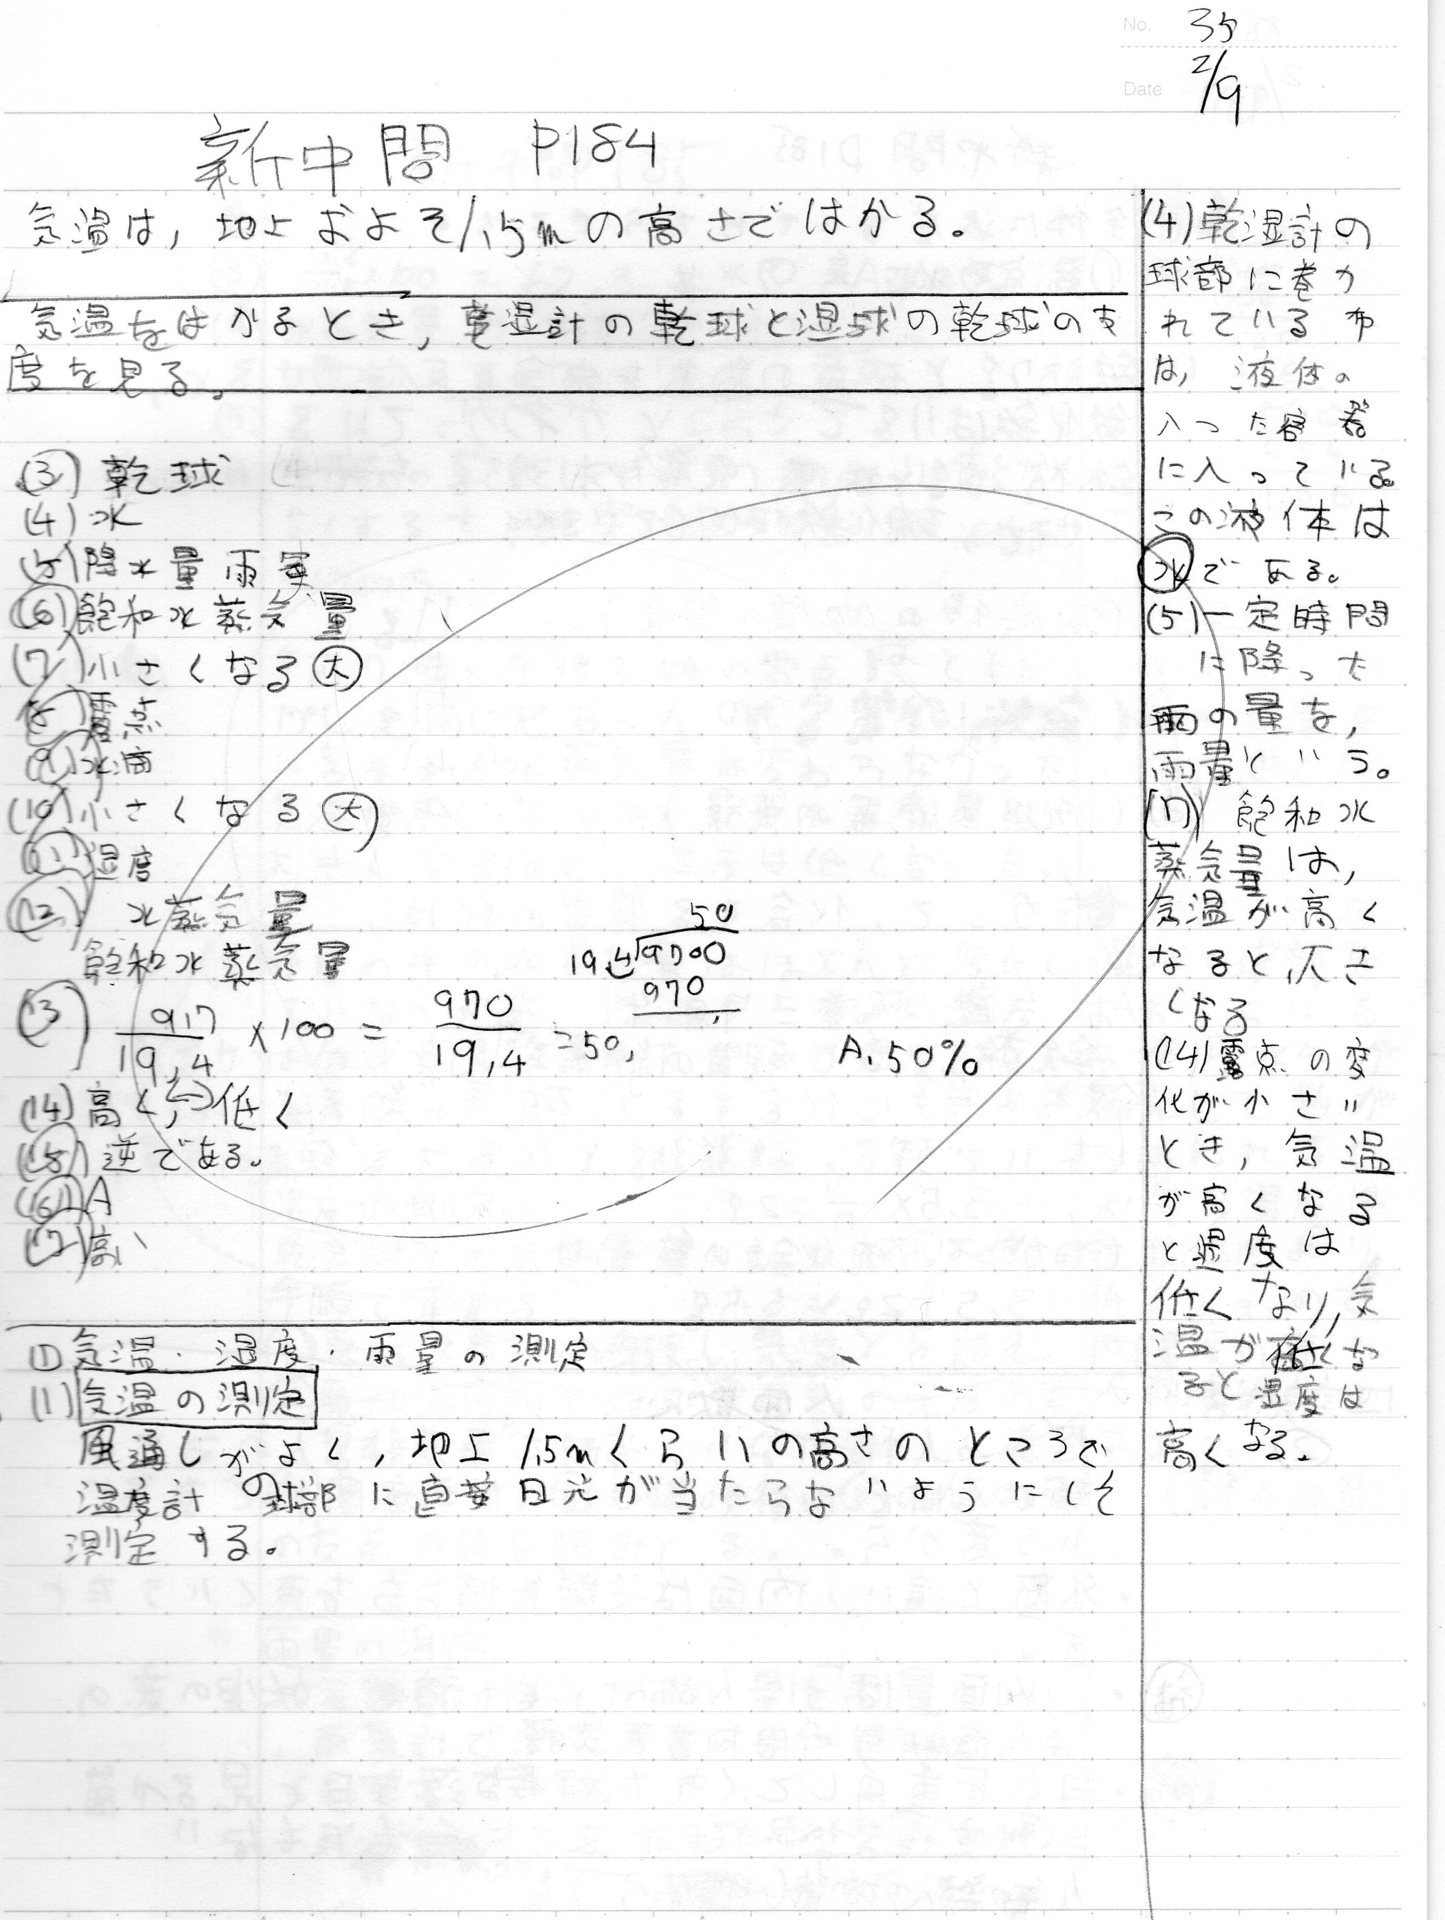 No. 35
Date 2/9
新中問 P184
気温は，地上およそ1.5mの高さではかる。
気温をはかるとき，乾湿計の乾球と湿球の乾球の
度を見る。
(3) 乾球
(4) 水
(5) 降水量 雨量
(6) 飽和水蒸気量
(7) 小さくなる 大
(8) 露点
(9) 水滴
(10) 小さくなる 大
(11) 湿度
(12) 水蒸気量
飽和水蒸気量
(13) 9.7/19.4 × 100 = 970/19.4 = 50.
50
19.4)9700
970
A. 50%
(14) 高く，低く
(15) 逆である。
(16) A
(17) 高い
① 気温・湿度・雨量の測定
(1) 気温の測定
風通しがよく，地上1.5mくらいの高さのところで
温度計の球部に直接日光が当たらないようにして
測定する。
(4) 乾湿計の
球部に巻か
れている布
は，液体の
入った容器
に入っている。
この液体は
水である。
(5) 一定時間
に降った
雨の量を，
雨量という。
(7) 飽和水
蒸気量は，
気温が高く
なると，大き
くなる
(14) 露点の変
化が小さい
とき，気温
が高くなる
と湿度は
低くなり，気
温が低くな
ると湿度は
高くなる。